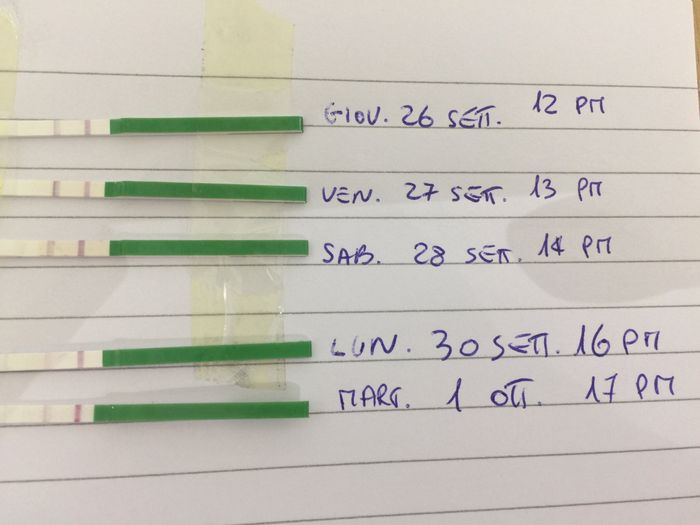 GIOV. 26 SETT. 12 PM
VEN. 27 SETT. 13 PM
SAB. 28 SETT. 14 PM
LUN. 30 SETT. 16 PM
MART. 1 OTT. 17 PM